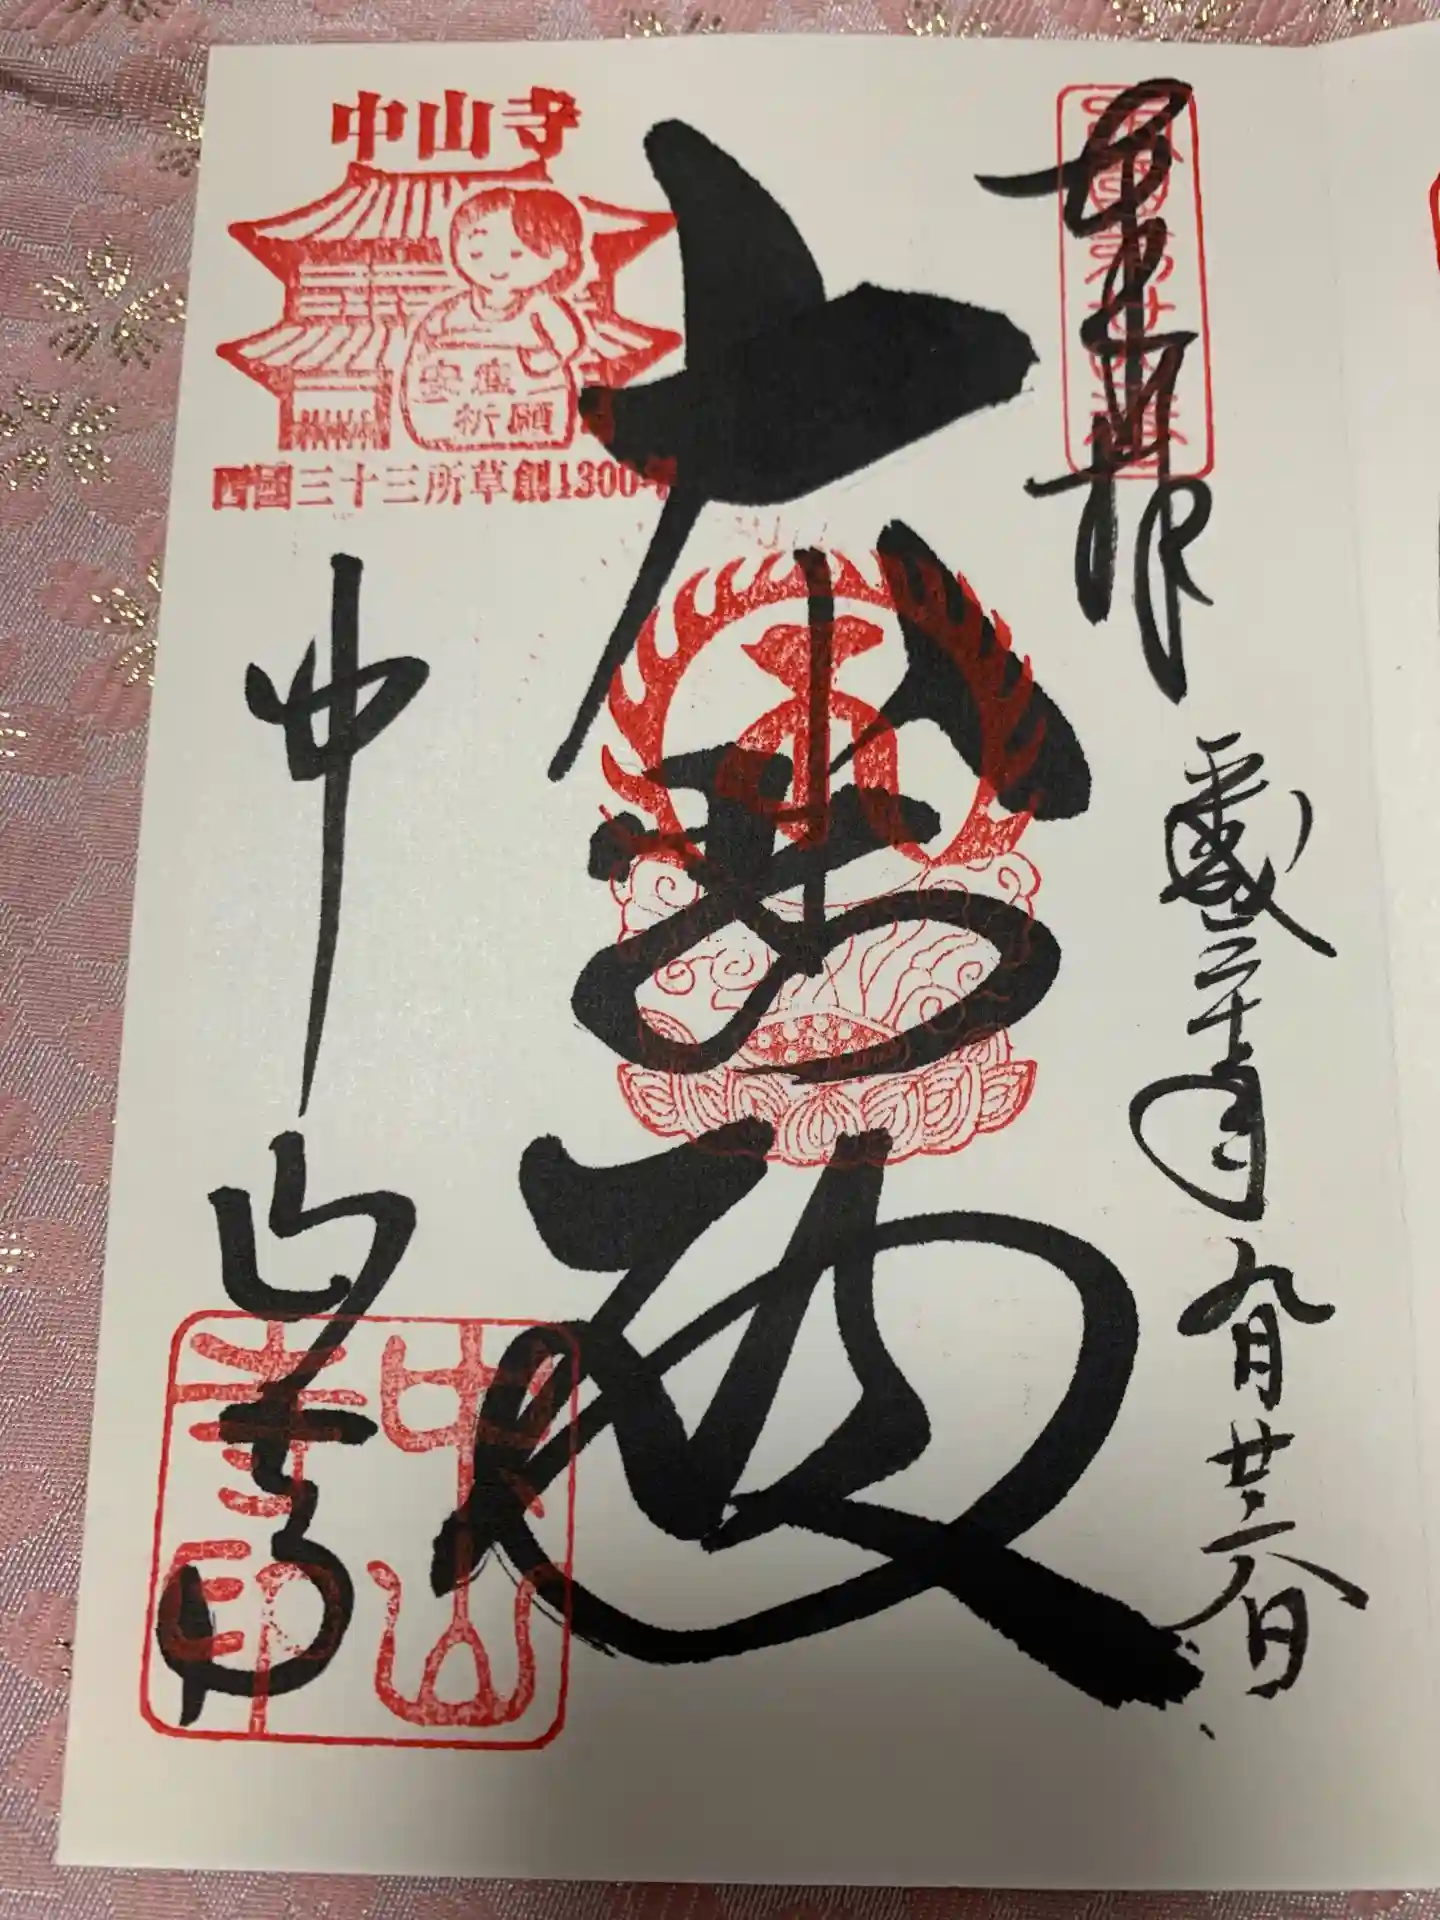 奉拝
平成三十年九月廿六日
大悲殿
中山寺
中山寺
安産
祈願
西國三十三所草創1300年
中山
寺印